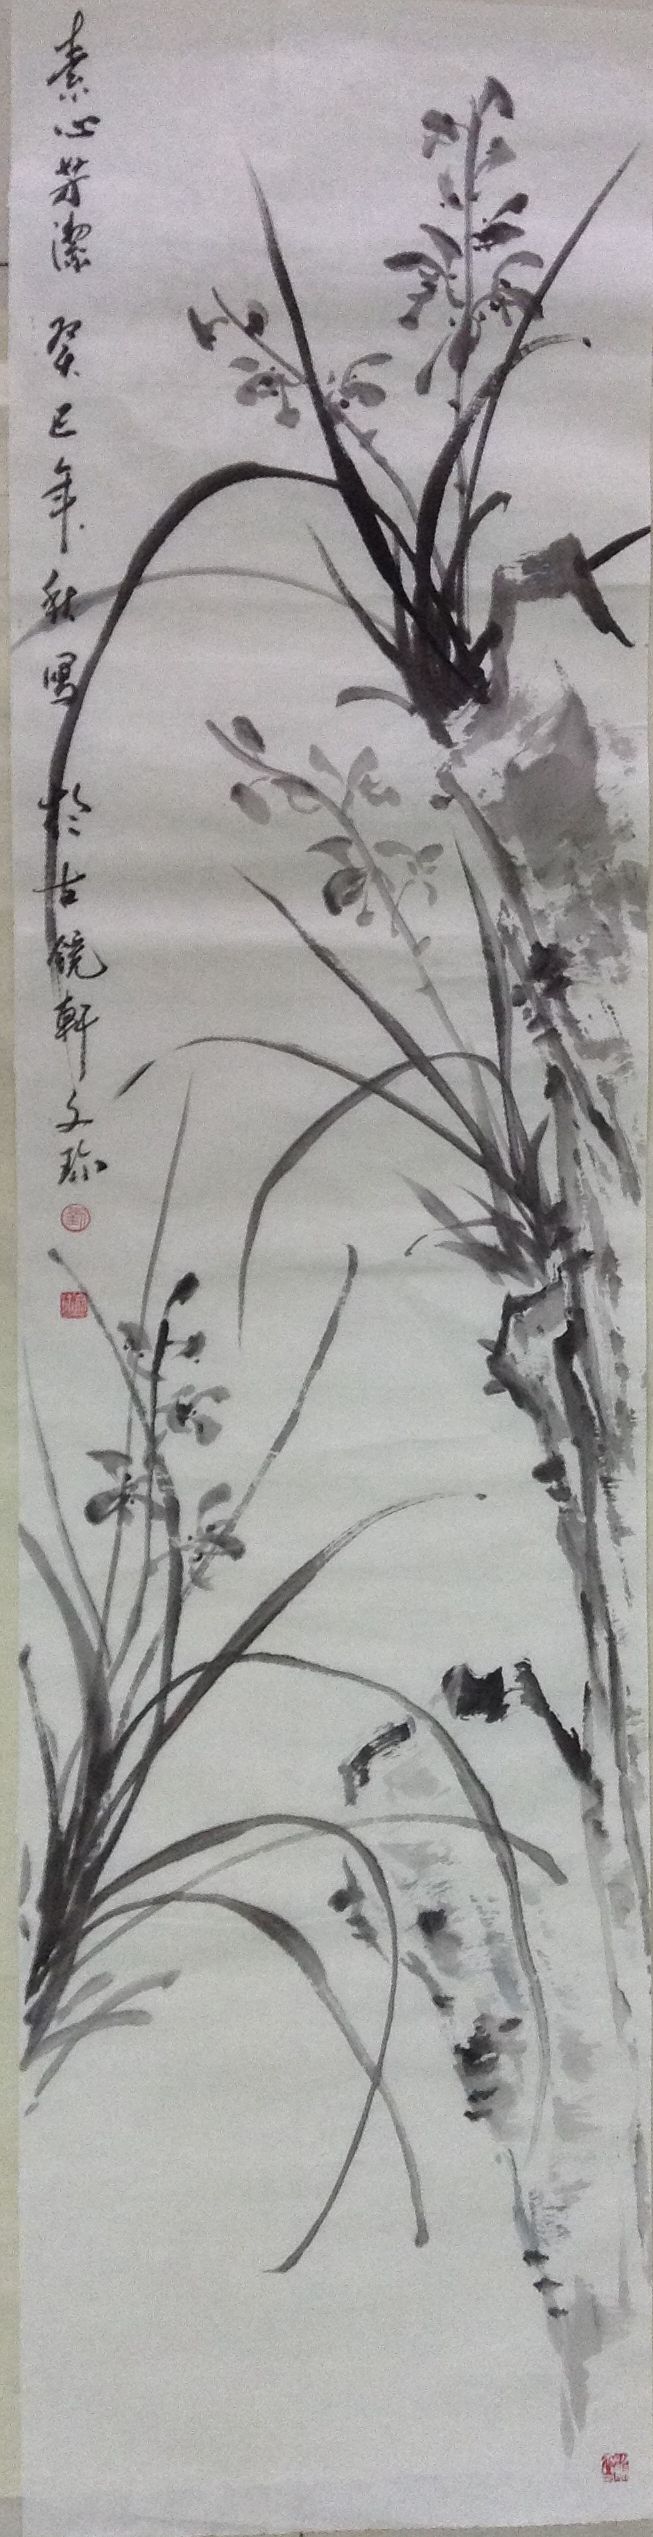 素心芳潔 癸巳年秋寫於古鏡軒文珍